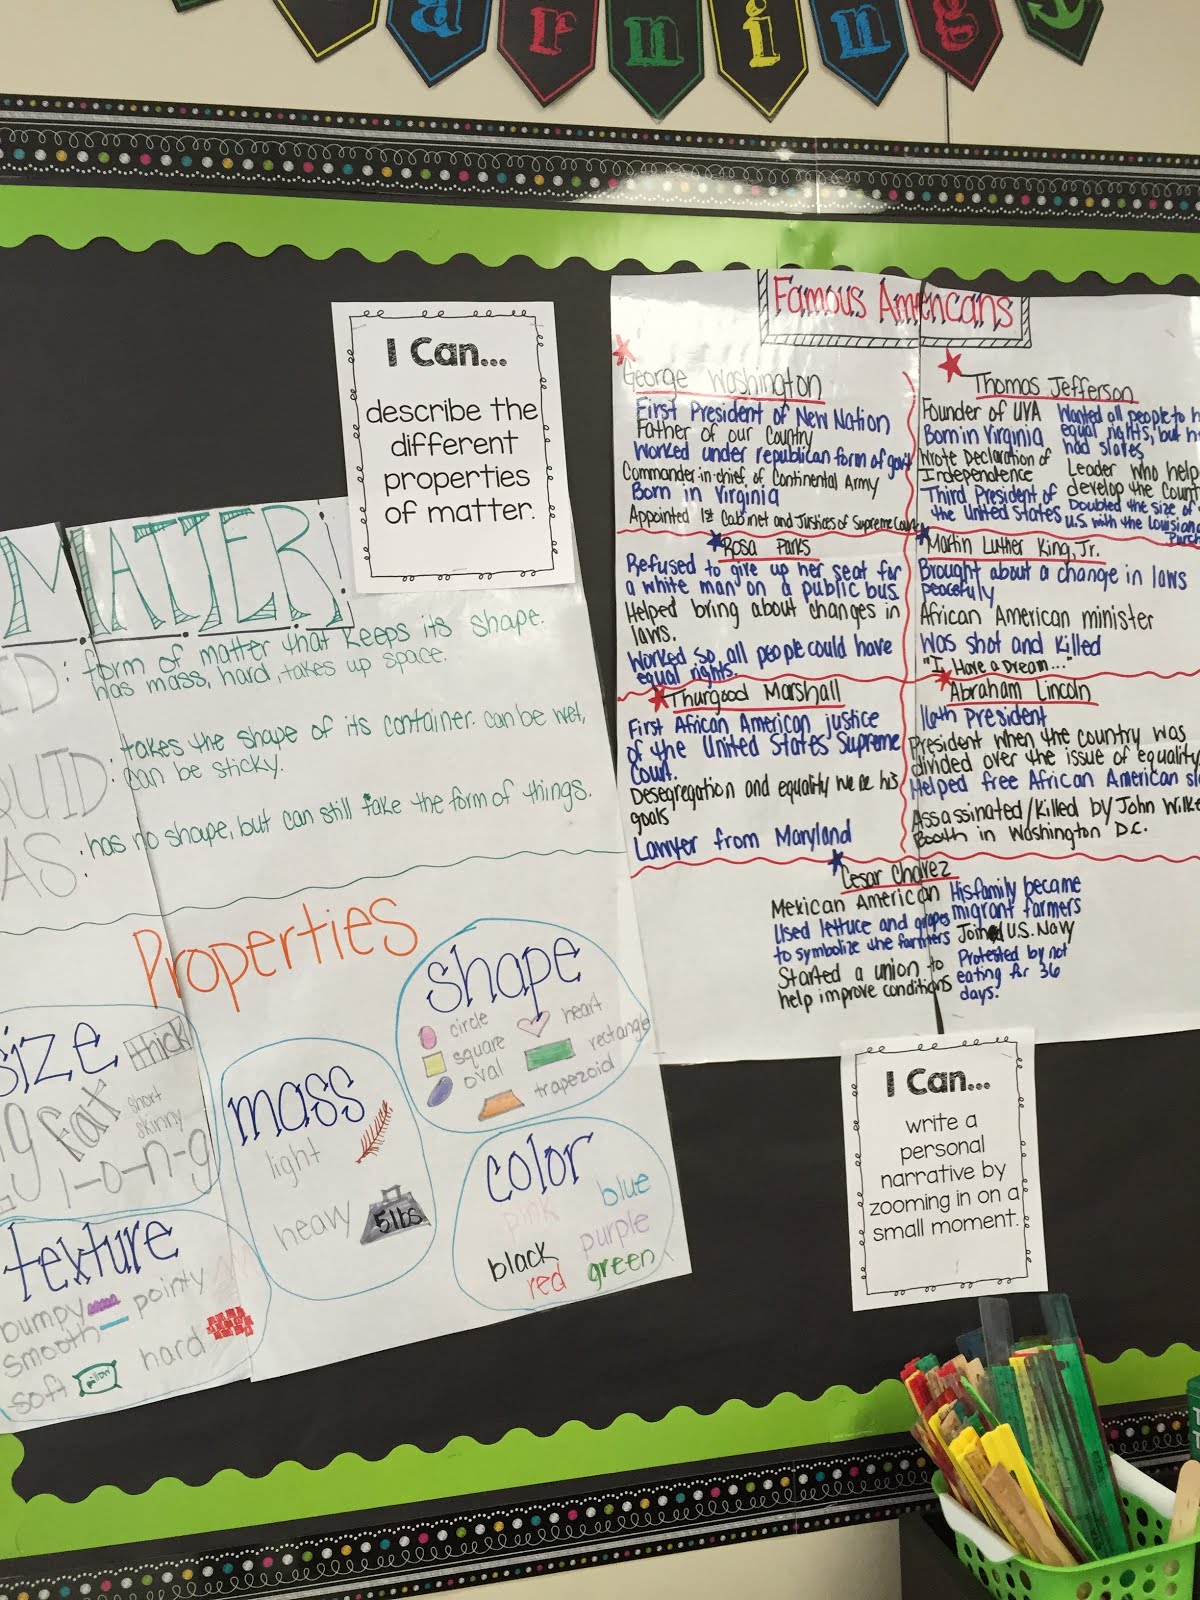 arning
I Can...
describe the
different
properties
of matter.
MATTER!
form of matter that keeps its shape.
has mass, hard, takes up space.
QUID:
takes the shape of its container. can be wet,
can be sticky.
AS:
has no shape, but can still take the form of things.
Properties
size
thick
fat
short
skinny
l-o-n-g
mass
light
heavy
5lbs
shape
circle
heart
square
rectangle
oval
trapezoid
color
blue
pink
purple
black
green
red
texture
bumpy
pointy
smooth
hard
soft
pillow
Famous Americans
George Washington
First President of New Nation
Father of our Country
Worked under republican form of gov't
Commander-in-chief of Continental Army
Born in Virginia
Appointed 1st Cabinet and Justices of Supreme Court
Thomas Jefferson
Founder of UVA
Born in Virginia
Wrote Declaration of
Independence
Third President of
the United States
Wanted all people to h
equal rights, but h
had slaves
Leader who help
develop the Count
Doubled the size of
U.S. with the Louisian
Purch
Rosa Parks
Refused to give up her seat for
a white man on a public bus.
Helped bring about changes in
laws.
Worked so all people could have
equal rights.
Martin Luther King, Jr.
Brought about a change in laws
peacefuly
African American minister
Was shot and killed
"I Have a Dream..."
Thurgood Marshall
First African American justice
of the United States Supreme
Court.
Desegregation and equality were his
goals
Lawyer from Maryland
Abraham Lincoln
16th president
President when the country was
divided over the issue of equality
Helped free African American sl
Assassinated/Killed by John Wilke
Booth in Washington D.C.
Cesar Chavez
Mexican American
Used lettuce and grapes
to symbolize the farmers
Started a union to
help improve conditions
His family became
migrant farmers
Joined U.S. Navy
Protested by not
eating for 36
days.
I Can...
write a
personal
narrative by
zooming in on a
small moment.